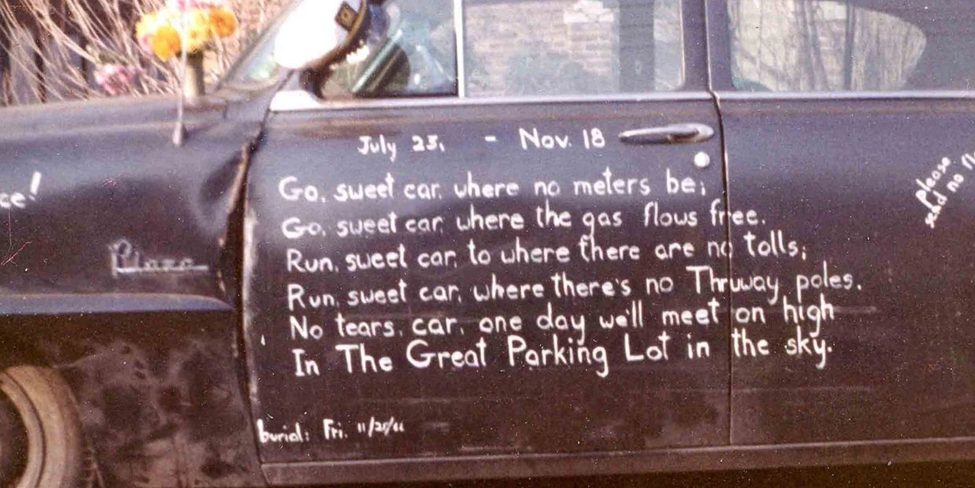 July 23, - Nov. 18
Go, sweet car, where no meters be;
Go, sweet car, where the gas flows free.
Run, sweet car, to where there are no tolls;
Run, sweet car, where there's no Thruway poles.
No tears, car, one day we'll meet on high
In The Great Parking Lot in the sky.
burial: Fri.
ce!
Plaza
please
send no fl